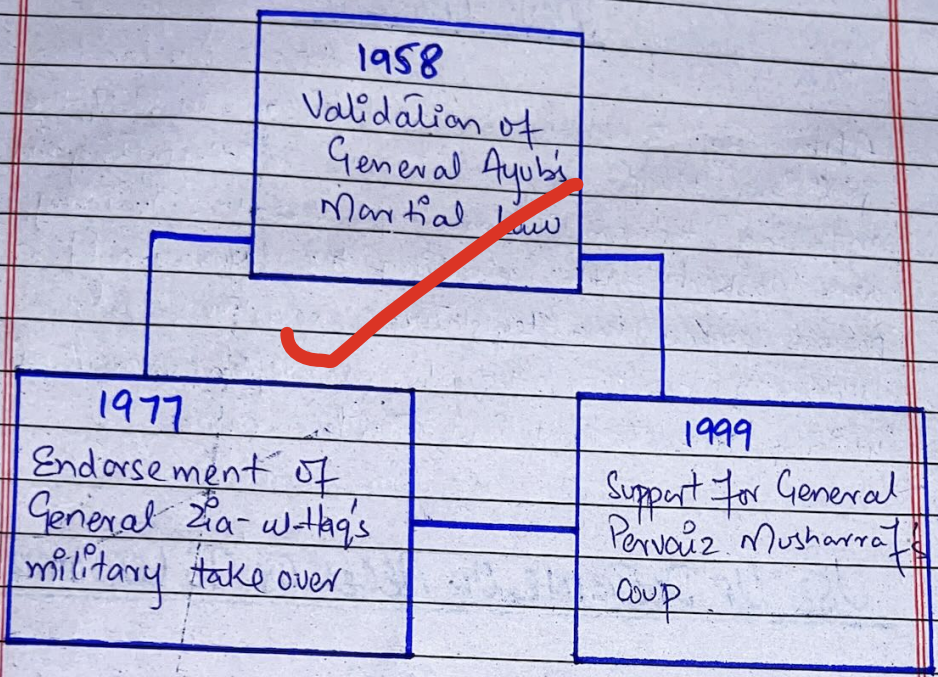 1958
Validation of
General Ayub's
Martial Law
1977
Endorsement of
General Zia-ul-Haq's
military take over
1999
Support for General
Pervaiz Musharraf's
Coup.